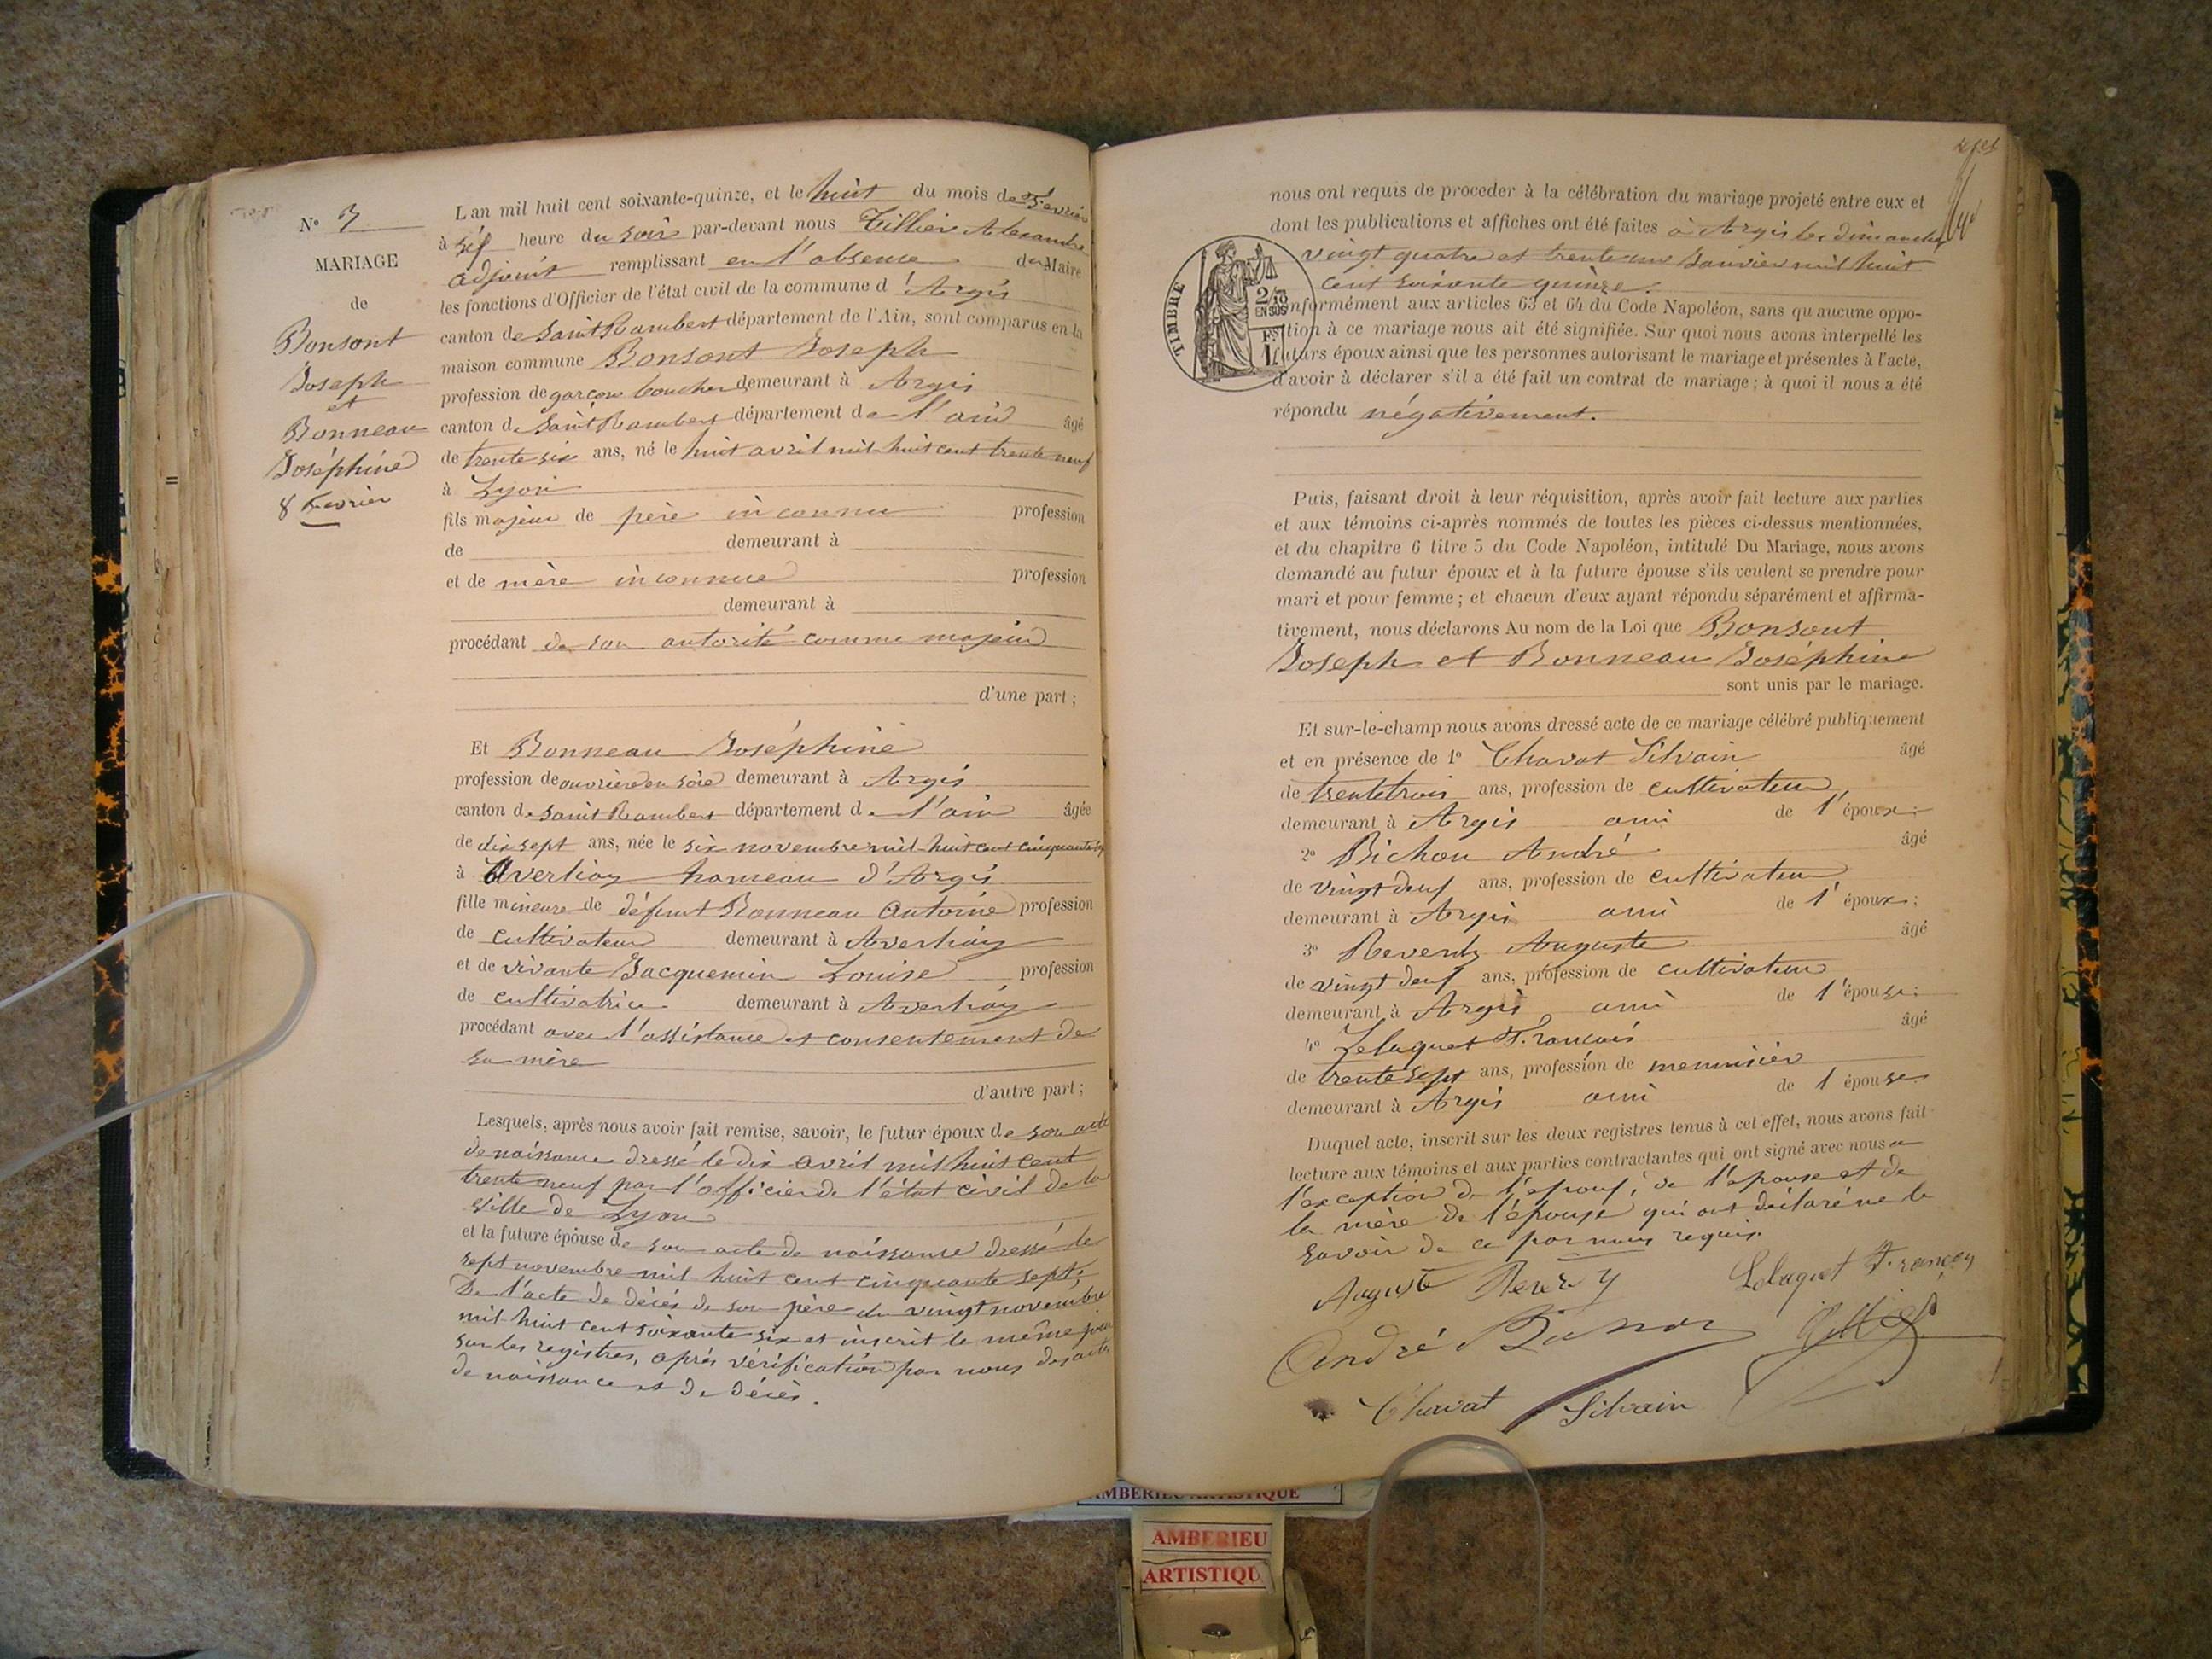 N° 3
MARIAGE
de
Bonsont
Joseph
et
Bonneau
Joséphine
8 Fevrier
L'an mil huit cent soixante-quinze, et le huit du mois de Fevrier
à heure du soir par-devant nous Tillier Alexandre
adjoint remplissant en l'absence du Maire
les fonctions d'Officier de l'état civil de la commune d'Argis
canton de Saint Rambert département de l'Ain, sont comparus en la
maison commune Bonsont Joseph
profession de garçon boucher demeurant à Argis
canton de Saint Rambert département de l'ain âgé
de trente six ans, né le huit avril mil huit cent trente neuf
à Lyon
fils majeur de père inconnu profession
de demeurant à
et de mère inconnue profession
demeurant à
procédant de son autorité comme majeur
d'une part ;
Et Bonneau Joséphine
profession de ouvrière en soie demeurant à Argis
canton de Saint Rambert département de l'ain âgée
de dix sept ans, née le six novembre mil huit cent cinquante sept
à Averliaz hameau d'Argis
fille mineure de défunt Bonneau Antoine profession
de cultivateur demeurant à Averliaz
et de vivante Jacquemin Louise profession
de cultivatrice demeurant à Averliaz
procédant avec l'assistance et consentement de
sa mère
d'autre part ;
Lesquels, après nous avoir fait remise, savoir, le futur époux de son acte
de naissance dressé le dix avril mil huit cent
trente neuf par l'officier de l'état civil de la
ville de Lyon
et la future épouse de son acte de naissance dressé le
sept novembre mil huit cent cinquante sept ;
De l'acte de décès de son père du vingt novembre
mil huit cent soixante six et inscrit le même jour
sur les registres, après vérification par nous des actes
de naissance et de décès.
nous ont requis de proceder à la célébration du mariage projeté entre eux et
dont les publications et affiches ont été faites à Argis les dimanches
vingt quatre et trente un Janvier mil huit
cent soixante quinze.
TIMBRE
2/10
EN SUS
conformément aux articles 63 et 64 du Code Napoléon, sans qu'aucune oppo-
sition à ce mariage nous ait été signifiée. Sur quoi nous avons interpellé les
futurs époux ainsi que les personnes autorisant le mariage et présentes à l'acte,
d'avoir à déclarer s'il a été fait un contrat de mariage ; à quoi il nous a été
répondu négativement.
Puis, faisant droit à leur réquisition, après avoir fait lecture aux parties
et aux témoins ci-après nommés de toutes les pièces ci-dessus mentionnées,
et du chapitre 6 titre 5 du Code Napoléon, intitulé Du Mariage, nous avons
demandé au futur époux et à la future épouse s'ils veulent se prendre pour
mari et pour femme ; et chacun d'eux ayant répondu séparément et affirma-
tivement, nous déclarons Au nom de la Loi que Bonsont
Joseph et Bonneau Joséphine
sont unis par le mariage.
Et sur-le-champ nous avons dressé acte de ce mariage célébré publiquement
et en présence de 1° Chavat Silvain âgé
de trente trois ans, profession de cultivateur,
demeurant à Argis ami de l'époux ;
2° Bichon André âgé
de vingt neuf ans, profession de cultivateur
demeurant à Argis ami de l'époux ;
3° Reverdy Auguste âgé
de vingt neuf ans, profession de cultivateur
demeurant à Argis ami de l'épouse ;
4° Lelaquet François âgé
de trente sept ans, profession de menuisier
demeurant à Argis ami de l'épouse
Duquel acte, inscrit sur les deux registres tenus à cet effet, nous avons fait
lecture aux témoins et aux parties contractantes qui ont signé avec nous a
l'exception de l'époux, de l'épouse et de
la mère de l'épouse qui ont déclaré ne le
savoir de ce par nous requis.
Lelaquet François
André
Chavat Silvain
AMBERIEU ARTISTIQUE
AMBERIEU
ARTISTIQU